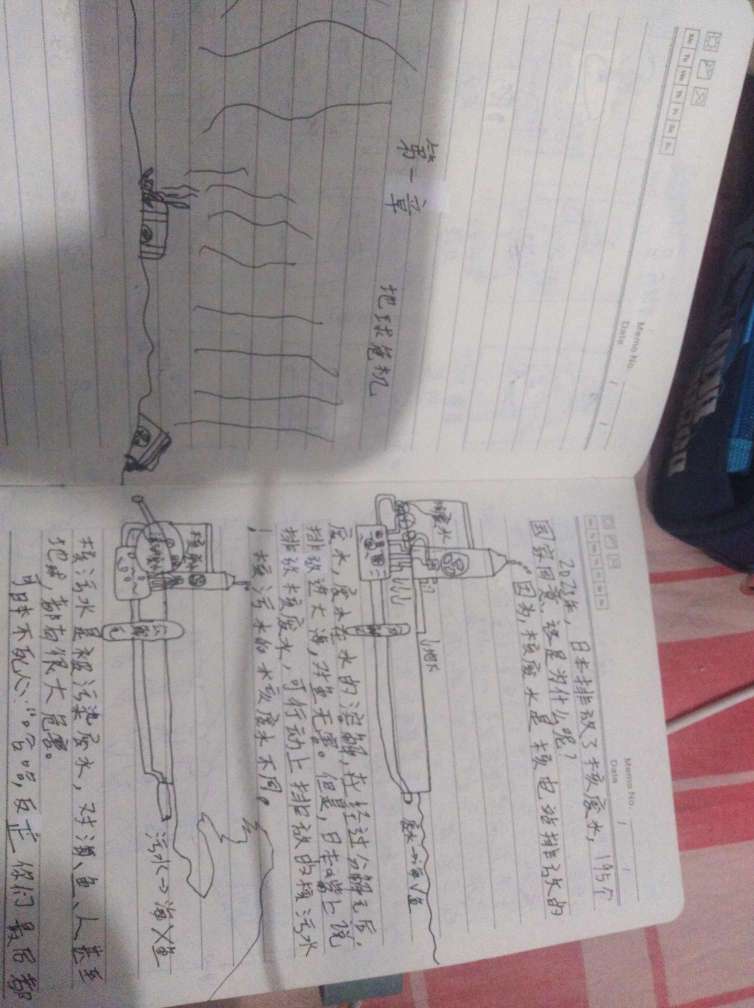 Memo No.
Date
Mo Tu We Th Fr Sa Su
第一章
地球危机
Memo No.
Date
2023年，日本排放了核废水，195个
国家同意，这是为什么呢？
因为，核废水是核电站排放的
废水，废水在水的溶解，在经过分解之后，
排放进大海，对鱼无害。但是，日本嘴上说
排放核废水，可行动上排放的核污水
！核污水的水核废水不同。
核废水
废水→海√鱼
污水→海×鱼
核污水是被污染废水，对海、鱼、人甚至
地球，都有很大危害。
可日本不死心："哈哈，反正你们最后都